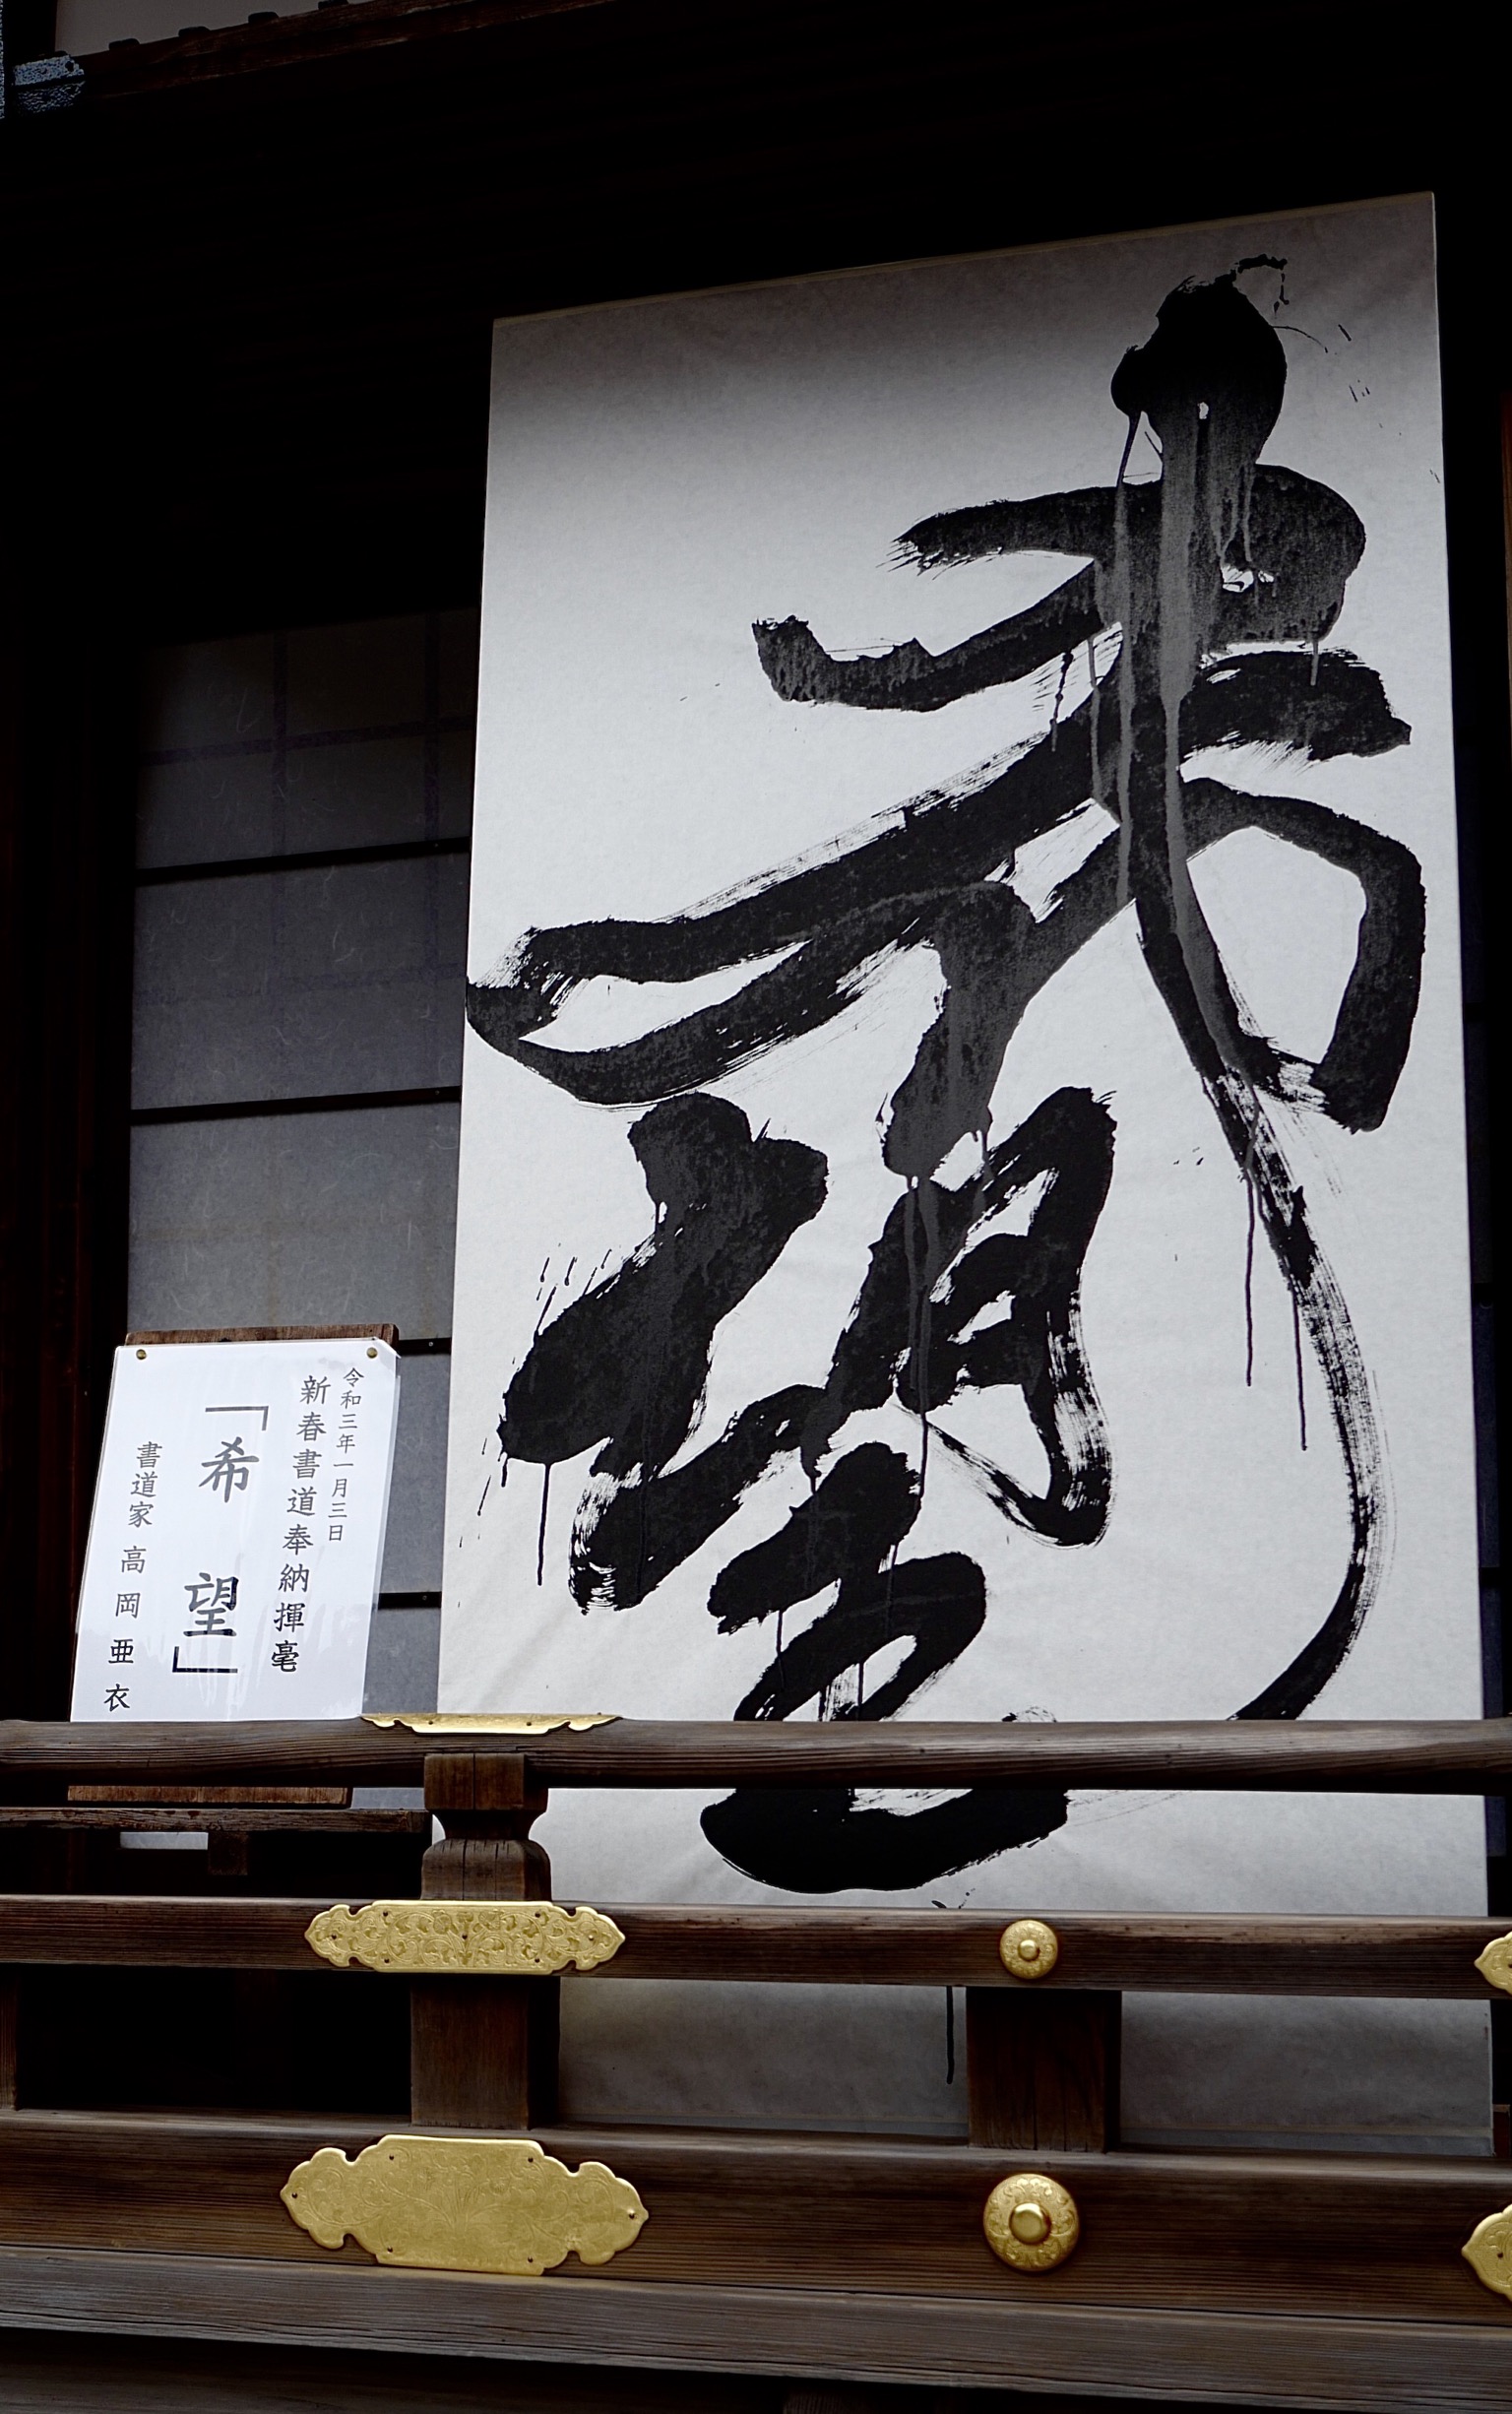 希望
令和三年一月三日
新春書道奉納揮毫
「希望」
書道家 高岡亜衣